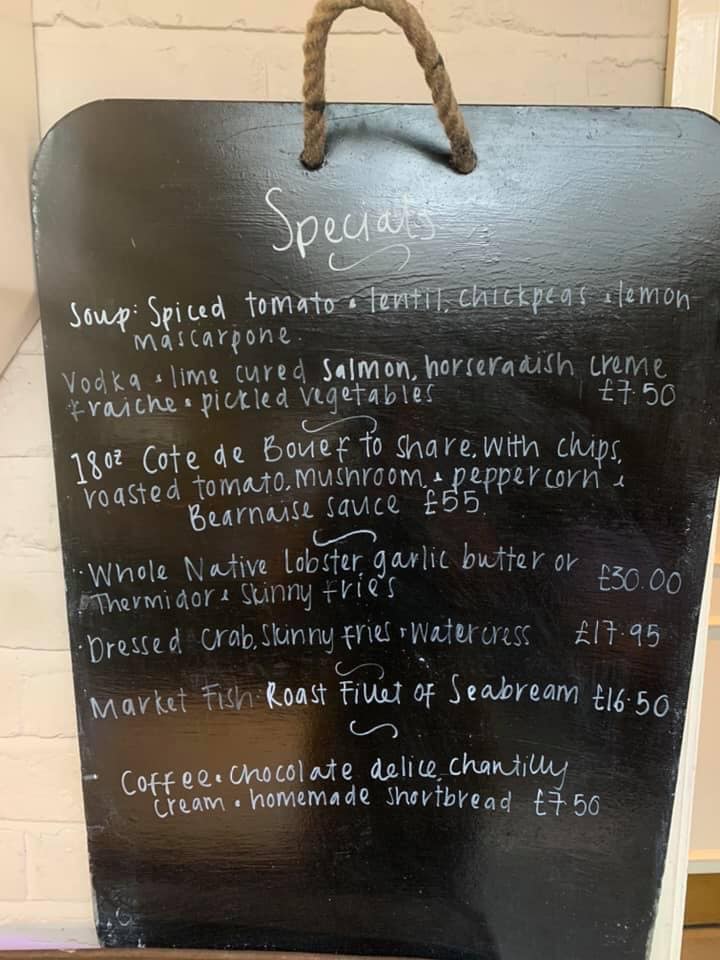 Specials
Soup: Spiced tomato & lentil, chickpeas & lemon
mascarpone.
Vodka & lime cured Salmon, horseradish creme
fraiche & pickled vegetables £7.50
18oz Cote de Bouef to share, with chips,
roasted tomato, mushroom, & peppercorn &
Bearnaise sauce £55.
Whole Native Lobster garlic butter or £30.00
Thermidor & Skinny fries
Dressed Crab, Skinny fries & Watercress £17.95
Market Fish: Roast Fillet of Seabream £16.50
Coffee & Chocolate delice, chantilly
cream & homemade shortbread £7.50